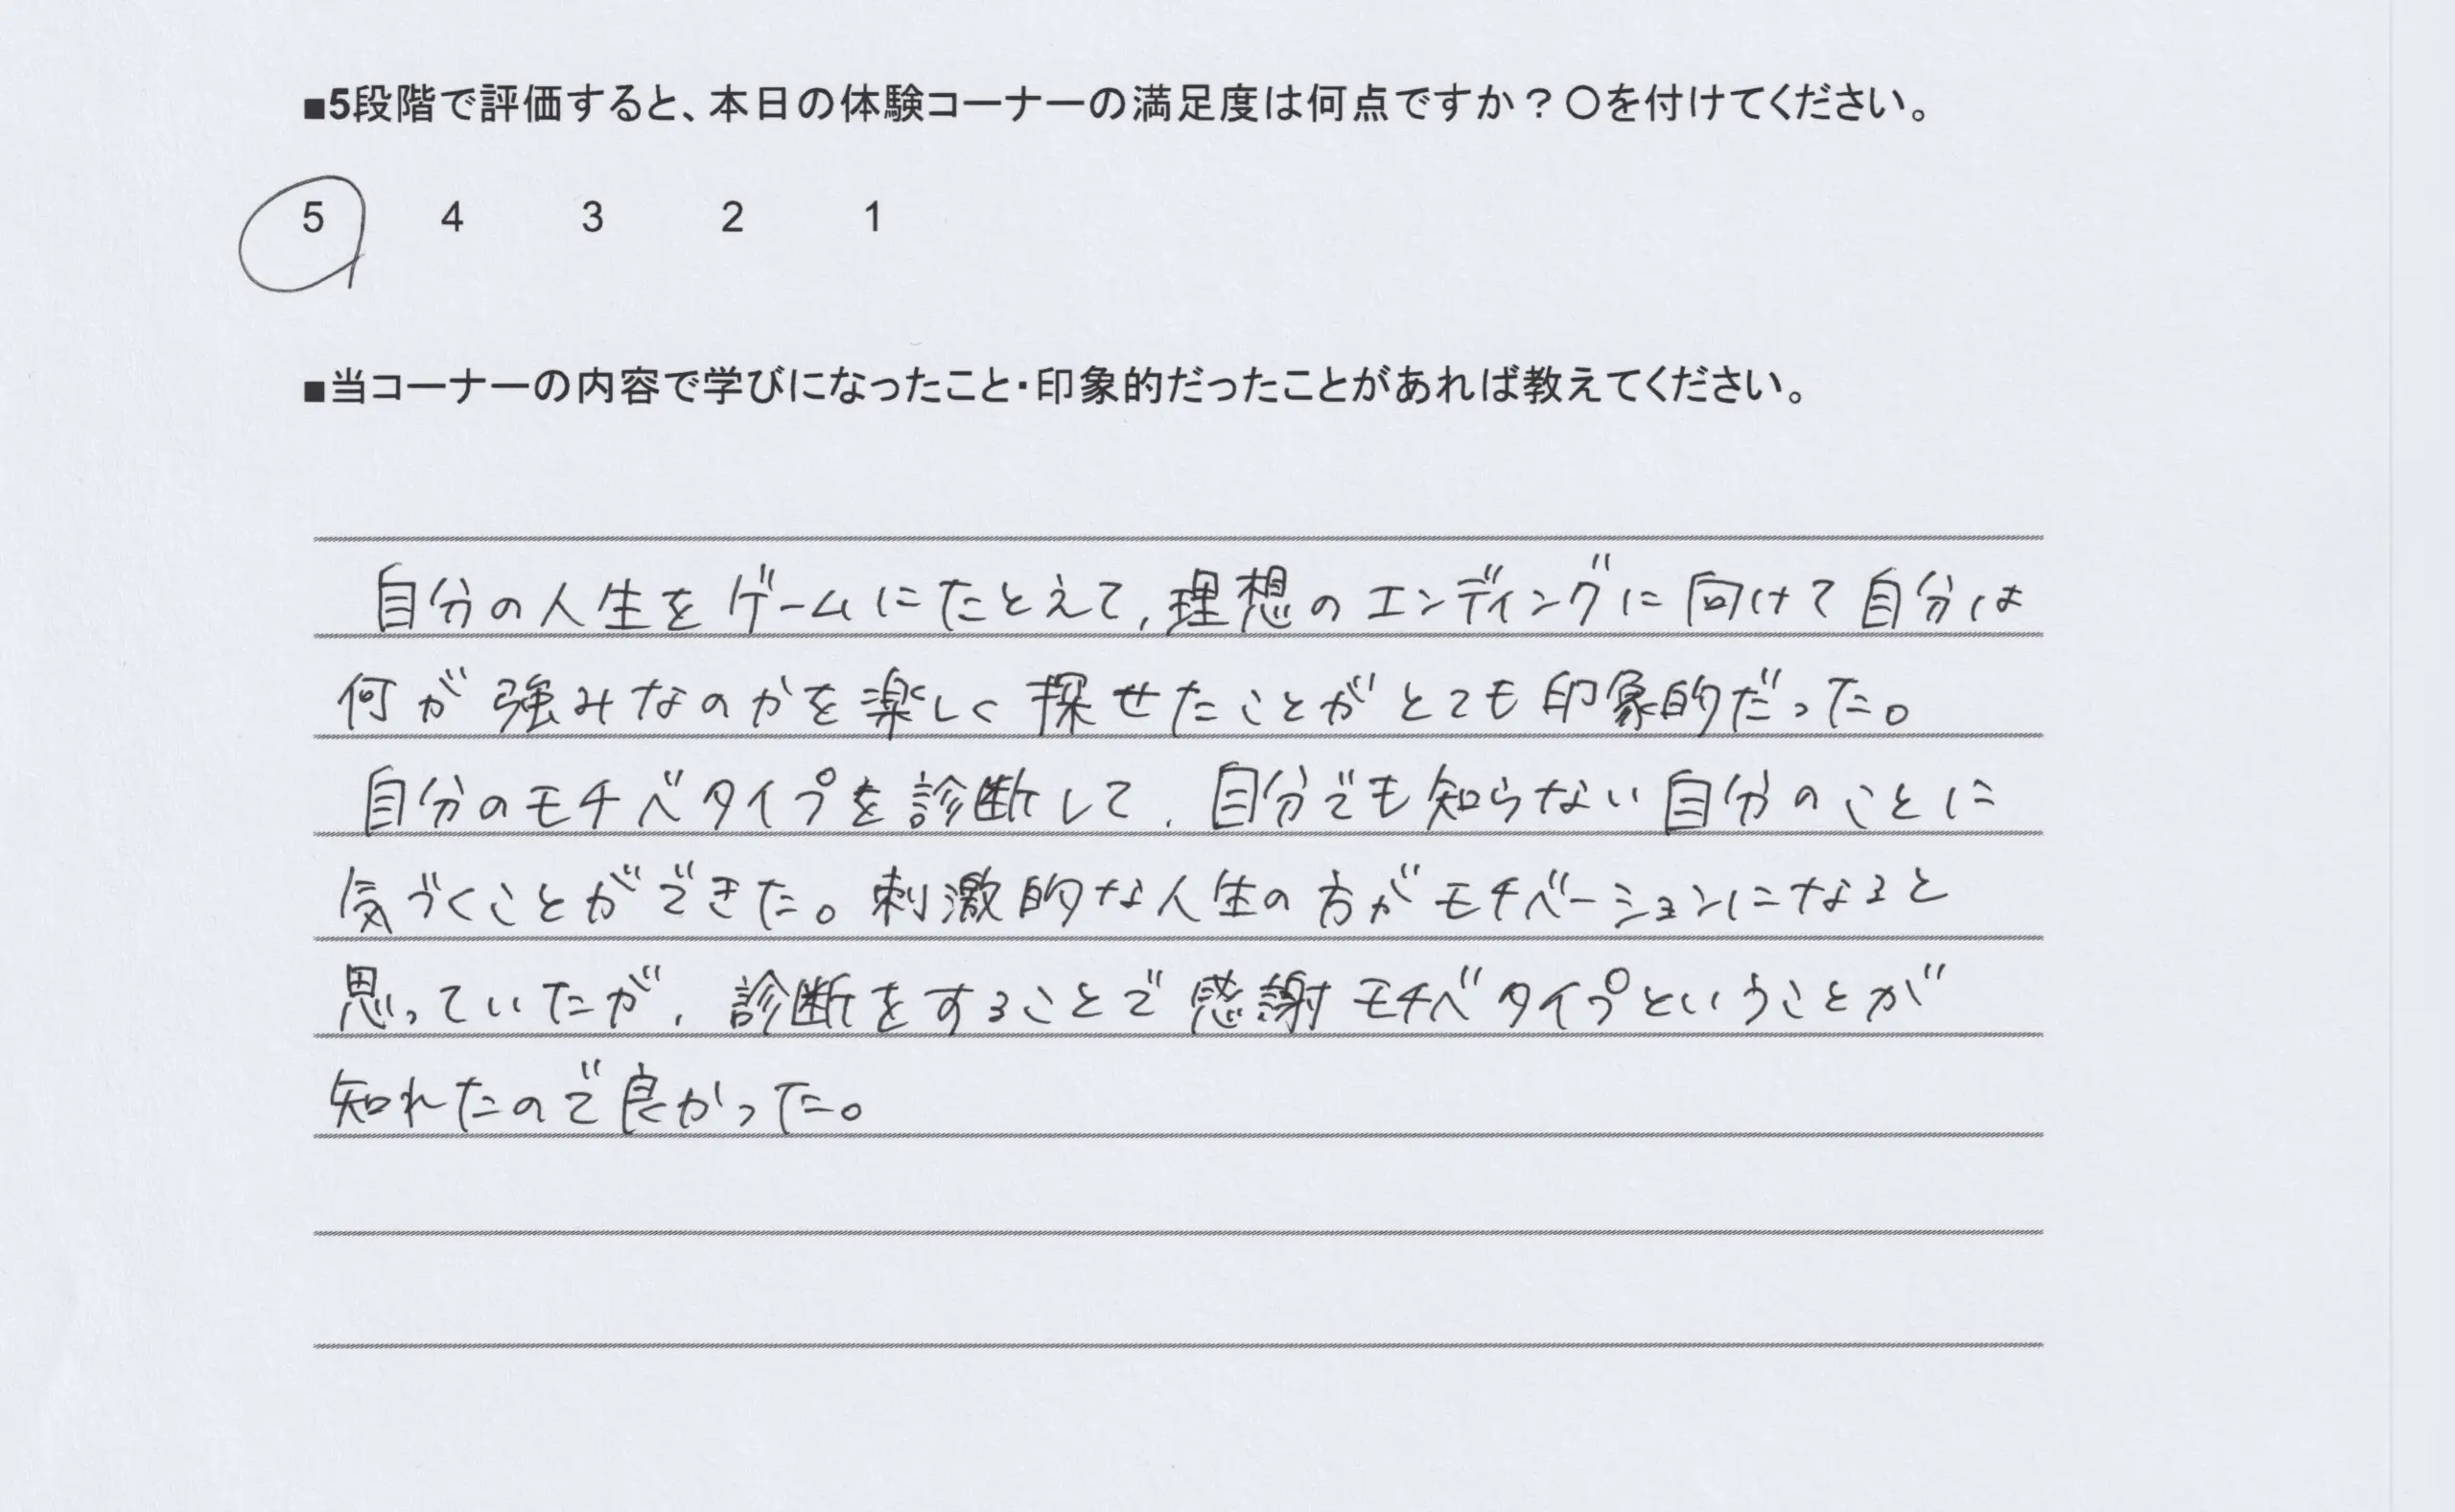 ■5段階で評価すると、本日の体験コーナーの満足度は何点ですか？〇を付けてください。
5 4 3 2 1
■当コーナーの内容で学びになったこと・印象的だったことがあれば教えてください。
自分の人生をゲームにたとえて、理想のエンディングに向けて自分は
何が強みなのかを楽しく探せたことがとても印象的だった。
自分のモチベタイプを診断して、自分でも知らない自分のことに
気づくことができた。刺激的な人生の方がモチベーションになると
思っていたが、診断をすることで感謝モチベタイプということが
知れたので良かった。